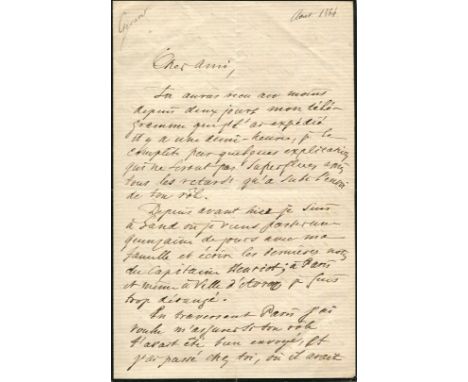 Août 1864
Cher ami,
Tu auras reçu au moins
depuis deux jours mon télé-
gramme que je t'ai expédié
il y a une demi-heure, je le
complète par quelques explications
qui ne seront pas superflues après
tous les retards qu'a subi l'envoi
de ton rôl.
Depuis avant hier je suis
à où je viens passer une
quinzaine de jours avec ma
famille et écrire les dernières notes
du Capitaine Henriot; à Paris
et même à Ville d'Avray je suis
trop dérangé.
En traversant Paris j'ai
voulu m'assurer si ton rôle
t'avait été bien envoyé, et
j'ai passé chez toi, où il avait